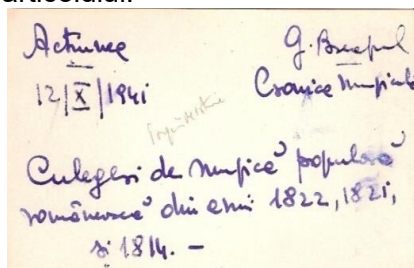 articolului.
Acțiunea G. Breazul
12/X/1941 Cronica muzicală
Culegeri de muzică populară
românească din anii 1822, 1821,
și 1814. –